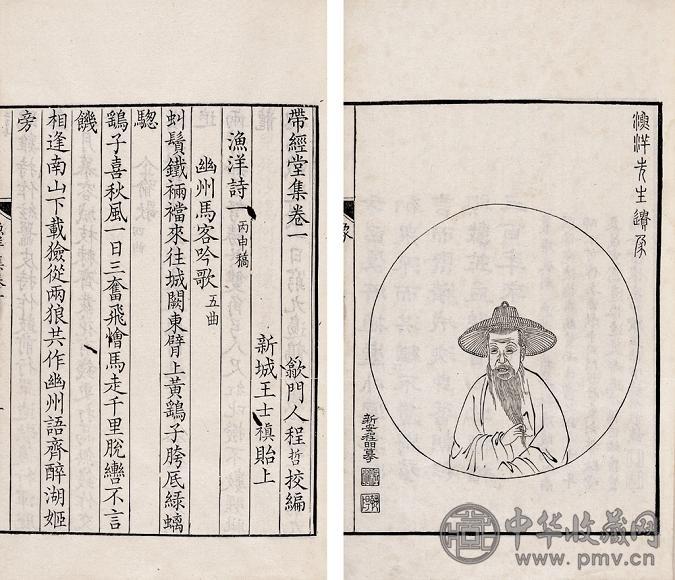 漁洋先生遺像
帶經堂集卷一 歙門人程哲挍編
新城王士禛貽上
漁洋詩一 丙申稿
幽州馬客吟歌 五曲
虯鬚鐵裲襠來往城闕東臂上黃鷂子胯底綠螭
驄
鷂子喜秋風一日三奮飛憎馬走千里脫轡不言
饑
相逢南山下載獫從兩狼共作幽州語齊醉湖姬
旁
中华收藏网
www.pmv.cn